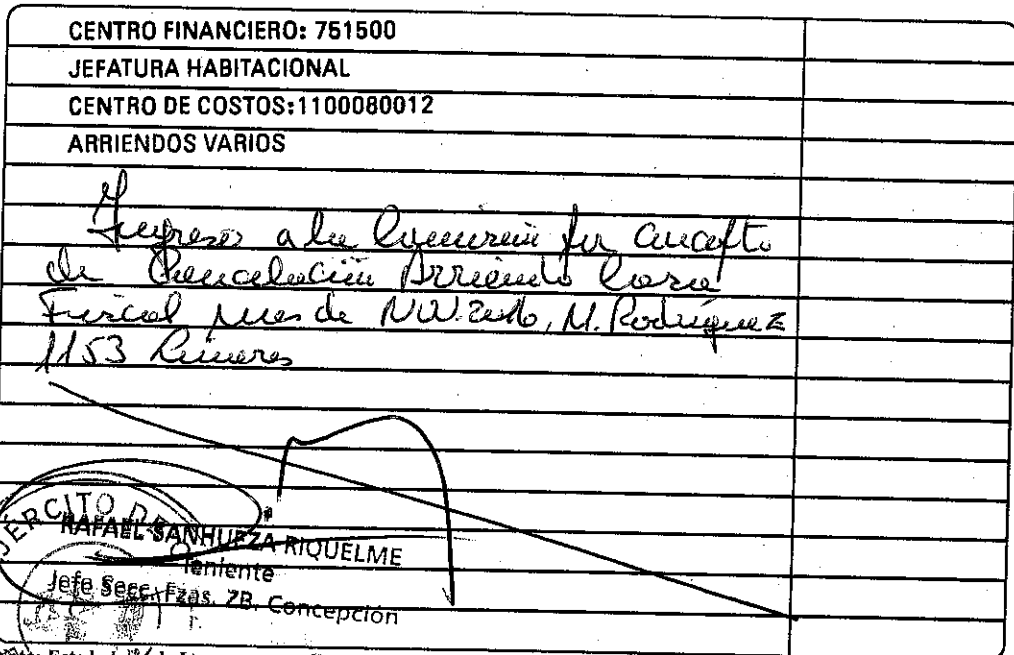 CENTRO FINANCIERO: 751500
JEFATURA HABITACIONAL
CENTRO DE COSTOS:1100080012
ARRIENDOS VARIOS
Ingreso a la por concepto
de Cancelación Arriendo Casa
Fiscal mes de M. Rodriguez
1153 Linares
EJÉRCITO DE
RAFAEL SANHUEZA RIQUELME
Teniente
Jefe Secc. Fzas. ZB. Concepción